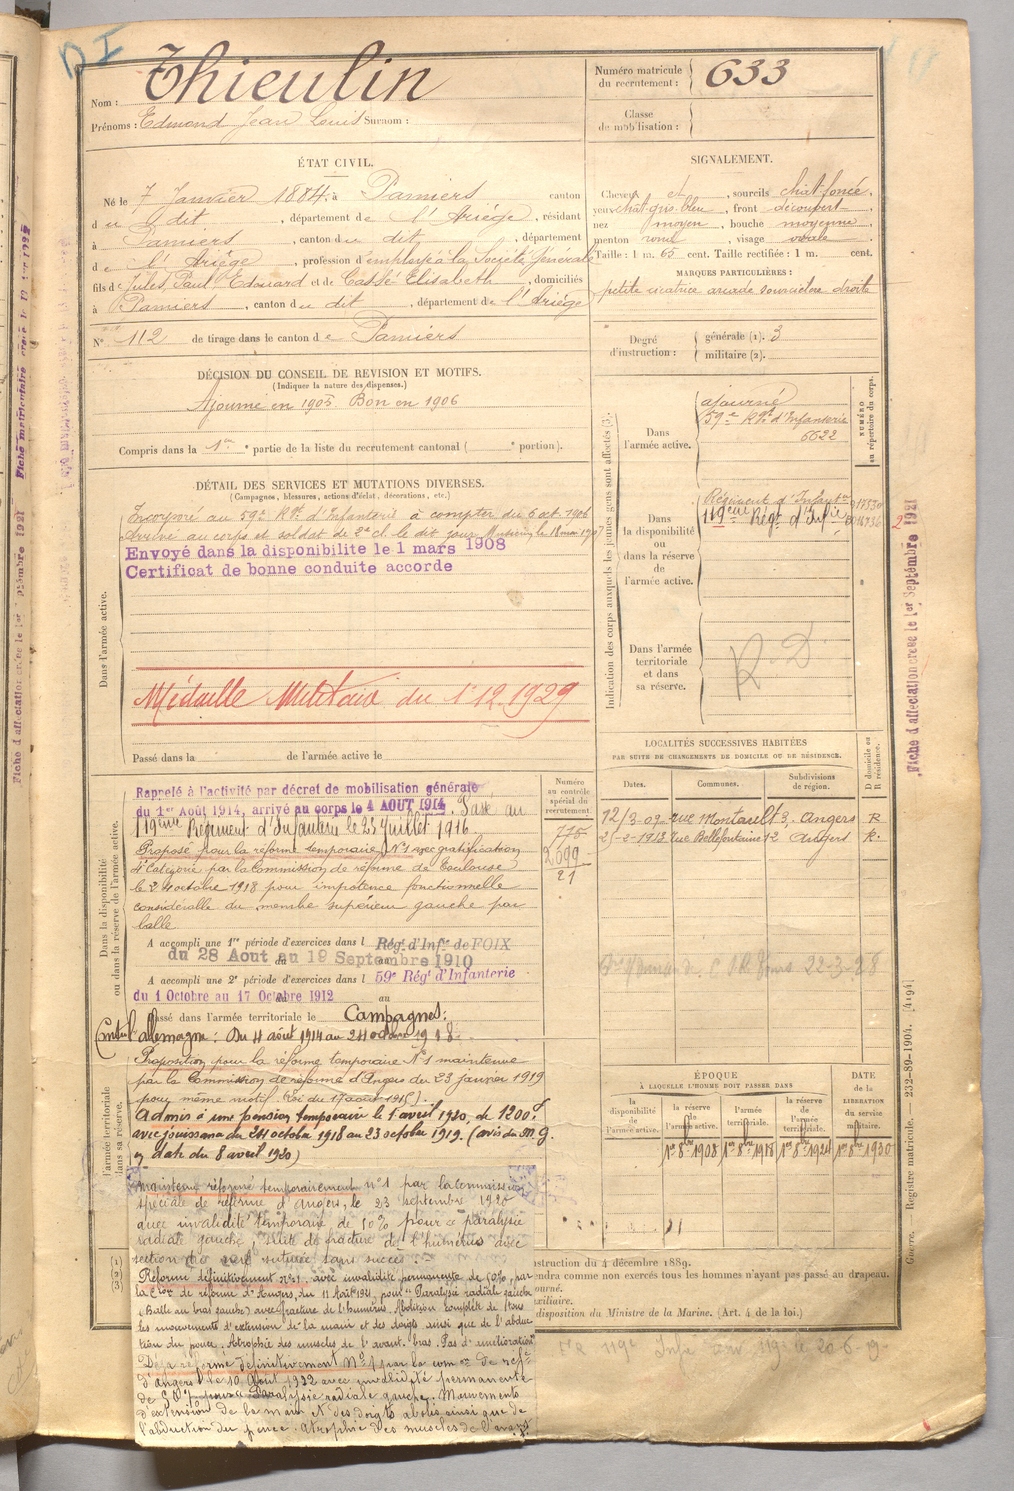 D I
Nom : Thieulin
Prénoms : Edmond Jean Louis Surnom :
Numéro matricule du recrutement : 633
Classe de mobilisation :
ÉTAT CIVIL.
Né le 7 Janvier 1884, à Pamiers canton
du dit, département de l'Ariége, résidant
à Pamiers, canton du dit, département
de l'Ariége, profession d'employé à la Société Générale
fils de Jules, Paul, Edouard et de Cassé Elisabeth, domiciliés
à Pamiers, canton du dit, département de l'Ariége
N° 112 de tirage dans le canton de Pamiers
SIGNALEMENT.
Cheveux et, sourcils chat-foncé,
yeux chat-gris-bleu, front découvert
nez moyen, bouche moyenne,
menton rond, visage ovale
Taille : 1 m. 65 cent. Taille rectifiée : 1 m. cent.
MARQUES PARTICULIÈRES :
petite cicatrice arcade sourcilière droite
Degré d'instruction : générale (1). 3
militaire (2).
DÉCISION DU CONSEIL DE REVISION ET MOTIFS.
(Indiquer la nature des dispenses.)
Ajourné en 1905 Bon en 1906
Compris dans la 1re partie de la liste du recrutement cantonal ( e portion).
DÉTAIL DES SERVICES ET MUTATIONS DIVERSES.
(Campagnes, blessures, actions d'éclat, décorations, etc.)
Dans l'armée active.
Incorporé au 59e Rgt d'Infanterie à compter du 6 oct. 1906
Arrivé au corps et soldat de 2e cl. le dit jour
Envoyé dans la disponibilite le 1 mars 1908
Certificat de bonne conduite accorde
Médaille Militaire du 1er 12.1929
Passé dans la de l'armée active le
Indication des corps auxquels les jeunes gens sont affectés (3).
NUMÉRO au répertoire du corps.
Dans l'armée active.
ajourné
59e Rgt d'Infanterie
6622
Dans la disponibilité ou dans la réserve de l'armée active.
Régiment d'Infant
119eme Régt d'Infie
Dans l'armée territoriale et dans sa réserve.
R. D
LOCALITÉS SUCCESSIVES HABITÉES
PAR SUITE DE CHANGEMENTS DE DOMICILE OU DE RÉSIDENCE.
Dates. Communes. Subdivisions de région. D domicile ou R résidence.
12/3-09 rue Montauelt 3. Angers R
25-2-1913 rue Bellefontaine 12 Angers R.
22-3-28
Dans la disponibilité ou dans la réserve de l'armée active.
Numéro au contrôle spécial du recrutement.
775
2099
21
Rappelé à l'activité par décret de mobilisation générale
du 1er Août 1914, arrivé au corps le 4 AOUT 1914. Passé au
119eme Régiment d'Infanterie le 23 Juillet 1916
Proposé pour la réforme temporaire N°1 avec gratification
4e Catégorie par la Commission de réforme de Toulouse
le 24 octobre 1918 pour impotence fonctionnelle
considérable du membre supérieur gauche par
balle.
A accompli une 1re période d'exercices dans l Régt d'Infie de FOIX
du 28 Aout au 19 Septembre 1910
A accompli une 2e période d'exercices dans l 59e Régt d'Infanterie
du 1 Octobre au 17 Octobre 1912
Passé dans l'armée territoriale le
Campagnes:
Contre l'allemagne : Du 4 août 1914 au 24 octobre 1918.
l'armée territoriale dans sa réserve.
Proposition pour la réforme temporaire N°1 maintenue
par la Commission de réforme d'Angers du 23 janvier 1919
pour même motif.
Admis à une pension temporaire le 1 avril 1920, de 1200f
avec jouissance du 24 octobre 1918 au 23 octobre 1919. (avis du M.G.
en date du 8 avril 1920)
Maintenu réformé temporairement n°1 par la Commission
spéciale de réforme d'Angers, le 23 septembre 1920
avec invalidité temporaire de 50% pour : paralysie
radiale gauche, suite de fracture de l'humérus avec
section du nerf suturée sans succès.
Réformé définitivement n°1, avec invalidité permanente de 50%, par
la Cion de réforme d'Angers, du 11 Août 1921, pour : Paralysie radiale gauche
(Balle au bras gauche) avec fracture de l'humérus. Abolition complète de tous
les mouvements d'extension de la main et des doigts ainsi que de l'abduc
tion du pouce. Atrophie des muscles de l'avant-bras. Pas d'amélioration
Déjà réformé définitivement N°1 par la com on de réf
d'Angers le 10 Août 1922 avec invalidité permanente
de paralysie radiale gauche. Mouvements
d'extension de la main et des doigts abolis ainsi que de
l'abduction du pouce. Atrophie des muscles de l'avant
ÉPOQUE
À LAQUELLE L'HOMME DOIT PASSER DANS
la disponibilité de l'armée active.
la réserve de l'armée active.
l'armée territoriale.
la réserve de l'armée territoriale.
DATE de la LIBÉRATION du service militaire.
1er 8bre 1908
1er 8bre 1918
1er 8bre 1924
1er 8bre 1930
(1)
(2)
(3)
struction du 4 décembre 1889.
endra comme non exercés tous les hommes n'ayant pas passé au drapeau.
ourné.
uxiliaire.
disposition du Ministre de la Marine. (Art. 4 de la loi.)
Guerre. Registre matricule. 232-89-1904. [4194]
Fiche d'affectation créée le 1er Septembre 1921